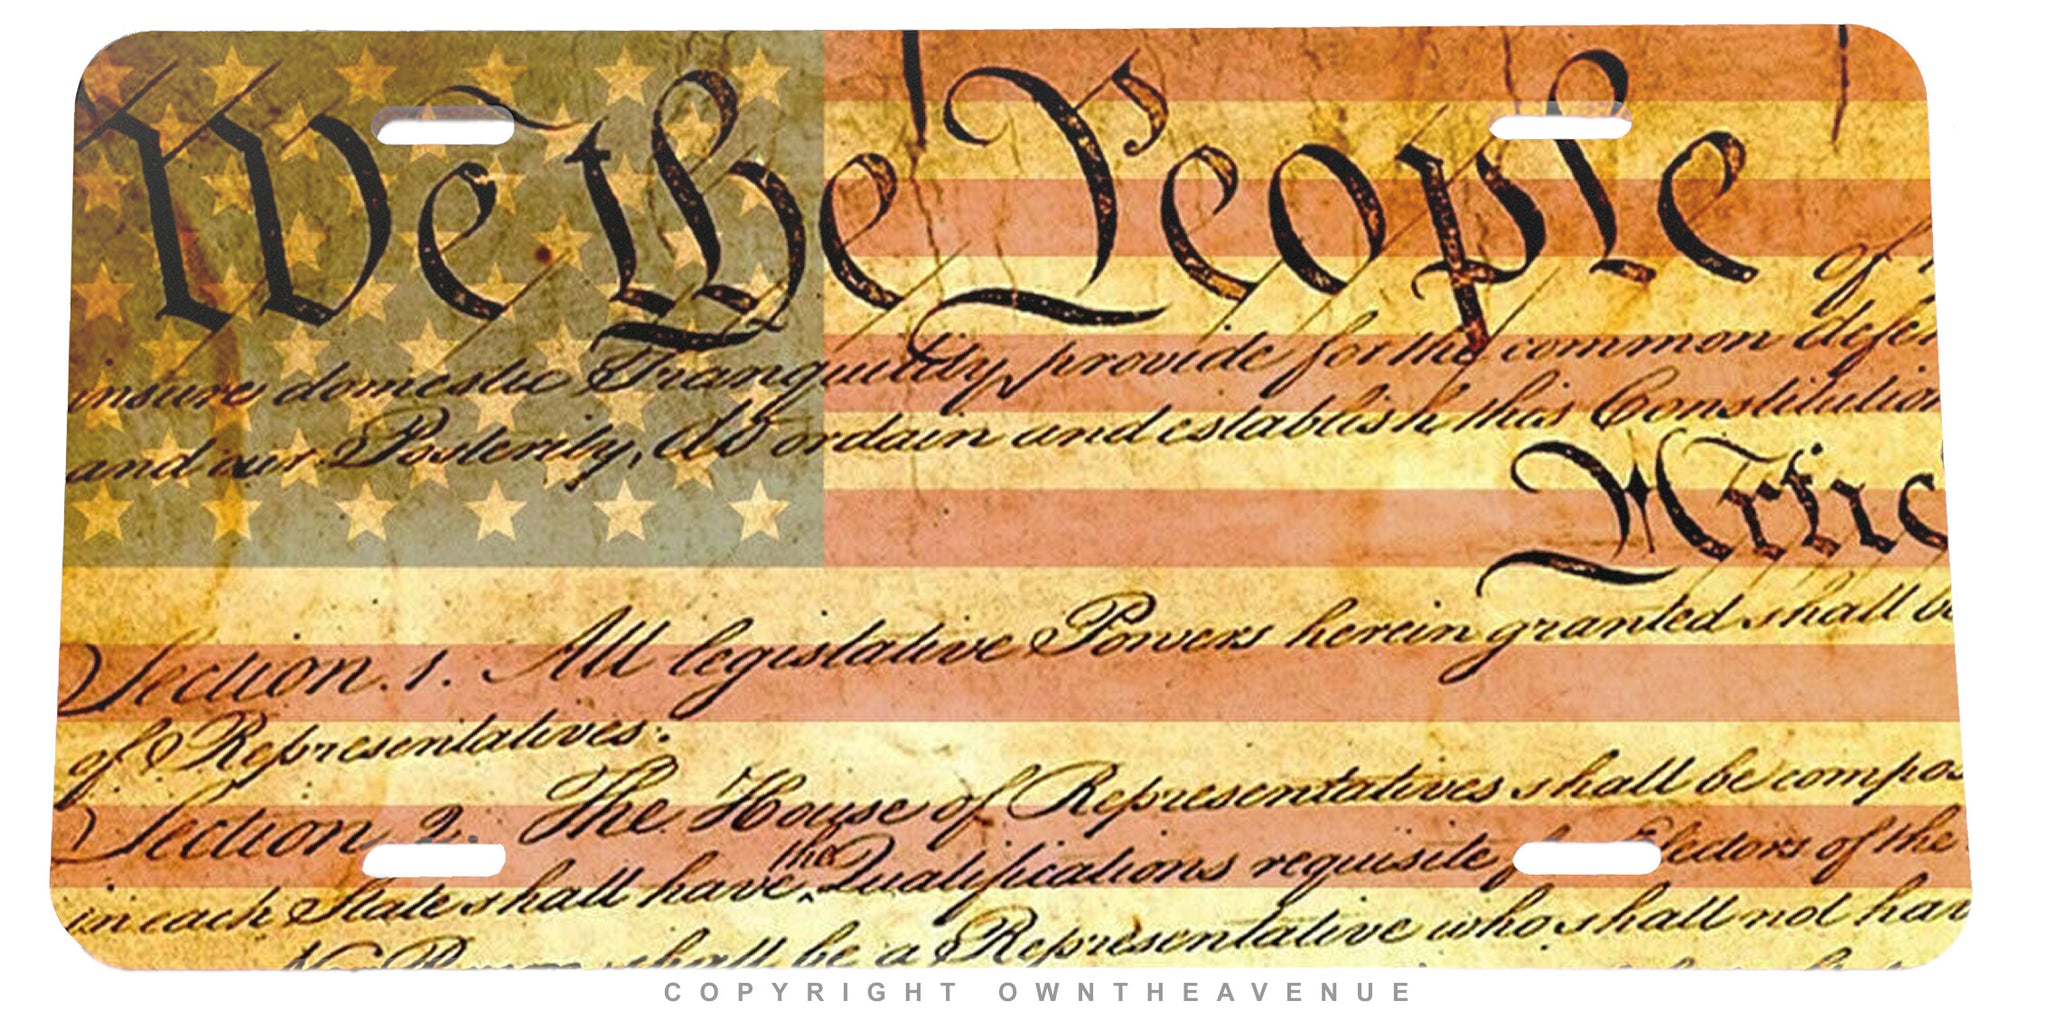 We the People
of
insure domestic Tranquility, provide for the common defen
and our Posterity, do ordain and establish this Constitution
Artic
Section. 1. All legislative Powers herein granted shall be
of Representatives.
Section. 2. The House of Representatives shall be compos
in each State shall have the Qualifications requisite Electors of the
No Person shall be a Representative who shall not hav
COPYRIGHT OWNTHEAVENUE